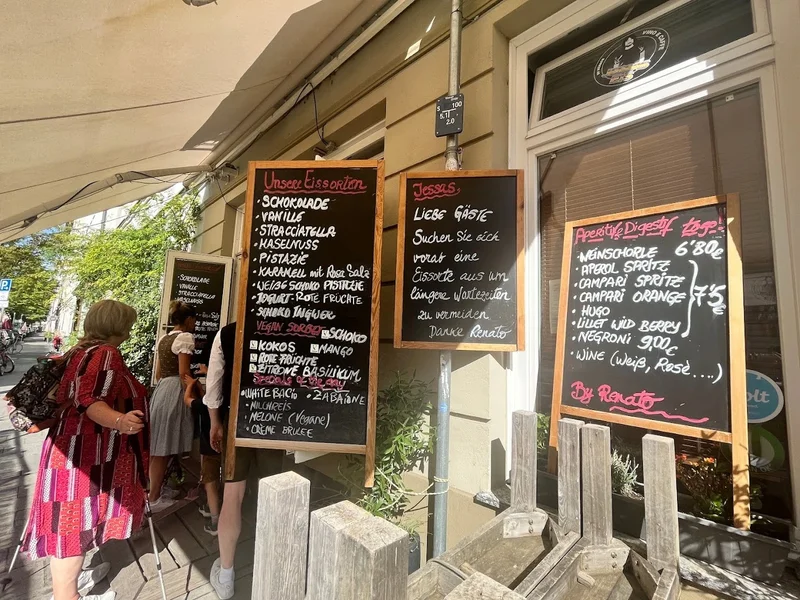 Unsere Eissorten
• SCHOKOLADE
• VANILLE
• STRACCIATELLA
• HASELNUSS
• PISTAZIE
• KARAMELL mit Rosa Salz
• WEIßE SCHOKO PISTAZIE
• JOGURT-ROTE FRÜCHTE
• SCHOKO INGWER
VEGAN SORBET
SCHOKO
KOKOS
MANGO
ROTE FRÜCHTE
ZITRONE BASILIKUM
Specials of the day
• WHITE BACIO
• ZABAIONE
• MILCHREIS
• MELONE (Vegane)
• CREME BRULEE
Jessas
LIEBE GÄSTE
Suchen Sie sich
vorab eine
Eissorte aus um
längere Wartezeiten
zu vermeiden
Danke Renato
Aperitif, Digestif
• WEINSCHORLE 6'80€
• APEROL SPRITZ
• CAMPARI SPRITZ
• CAMPARI ORANGE
• HUGO
• LILLET WILD BERRY
• NEGRONI 9,00€
• WINE (Weiß, Rosè....)
By Renato
S 100
5.1
2.0
• SCHOKOLADE
VANILLE
STRACCIATELLA
VINO & CAFFE
P